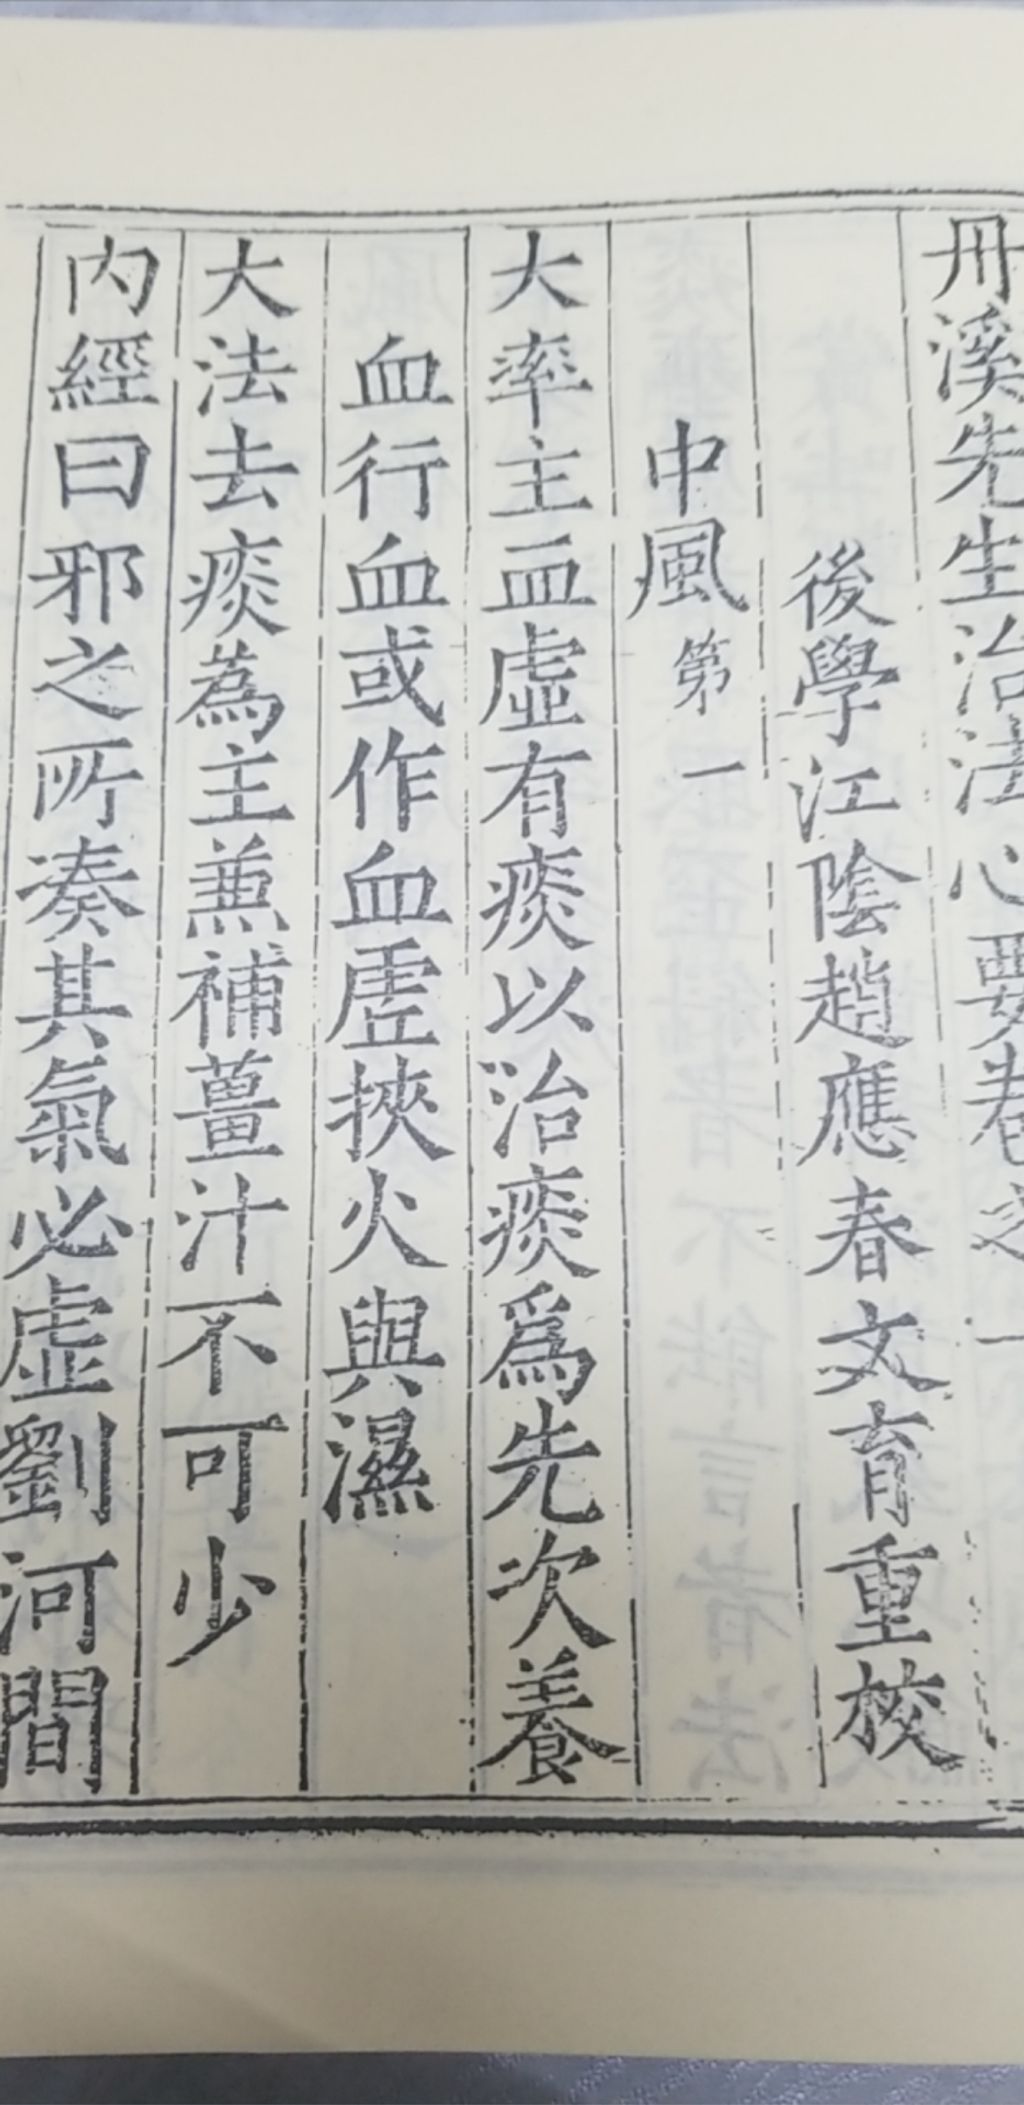 丹溪先生治法心要卷之一
後學江陰趙應春文育重校
中風第一
大率主血虛有痰以治痰爲先次養
血行血或作血虗挾火與濕
大法去痰為主兼補薑汁不可少
內經曰邪之所凑其氣必虛劉河間